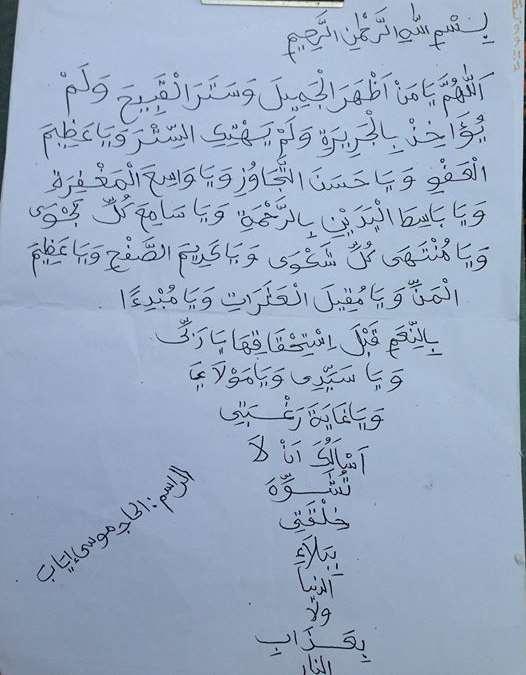 بِسْمِ اللهِ الرَّحْمٰنِ الرَّحِيمِ
اَللّٰهُمَّ يَا مَنْ اَظْهَرَ الْجَمِيلَ وَسَتَرَ الْقَبِيحَ وَلَمْ
يُؤَاخِذْ بِالْجَرِيرَةِ وَلَمْ يَهْتِكِ السِّتْرَ وَيَا عَظِيمَ
الْعَفْوِ وَيَا حَسَنَ التَّجَاوُزِ وَيَا وَاسِعَ الْمَغْفِرَةِ
وَيَا بَاسِطَ الْيَدَيْنِ بِالرَّحْمَةِ وَيَا سَامِعَ كُلِّ نَجْوَى
وَيَا مُنْتَهَى كُلِّ شَكْوَى وَيَا كَرِيمَ الصَّفْحِ وَيَا عَظِيمَ
الْمَنِّ وَيَا مُقِيلَ الْعَثَرَاتِ وَيَا مُبْدِءًا
بِالنِّعَمِ قَبْلَ اِسْتِحْقَاقِهَا يَا رَبِّي
وَيَا سَيِّدِى وَيَا مَوْلَاىَ
وَيَا غَايَةَ رَغْبَتِي
اَسْأَلُكَ اَنْ لَا
تُشَوِّهَ
خِلْقَتِي
بِبَلَاءِ
الدنيا
ولا
بِعَذَابِ
النار
الراسم: الحاج موسى إيتاب